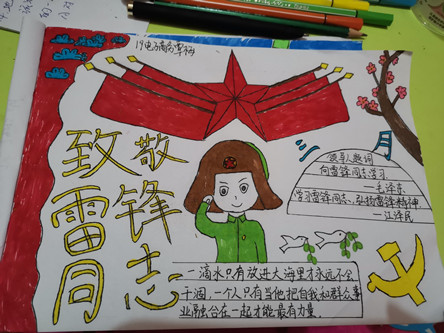 19电子商务
三月
致敬
雷锋
同志
领导人题词
向雷锋同志学习
—毛泽东
学习雷锋同志、弘扬雷锋精神
—江泽民
一滴水只有放进大海里才永远不会
干涸,一个人只有当他把自我和群众事
业融合在一起才能最有力量.